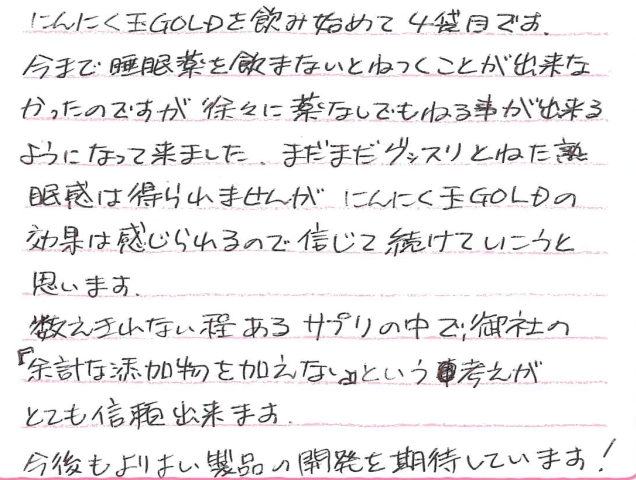 にんにく玉GOLDを飲み始めて4袋目です.
今まで睡眠薬を飲まないとねつくことが出来な
かったのですが徐々に薬なしでもねる事が出来る
ようになって来ました. まだまだグッスリとねた熟
眠感は得られませんが にんにく玉GOLDの
効果は感じられるので信じて続けていこうと
思います.
数えきれない程あるサプリの中で,御社の
『余計な添加物を加えない』という考えが
とても信頼出来ます.
今後もよりよい製品の開発を期待しています!